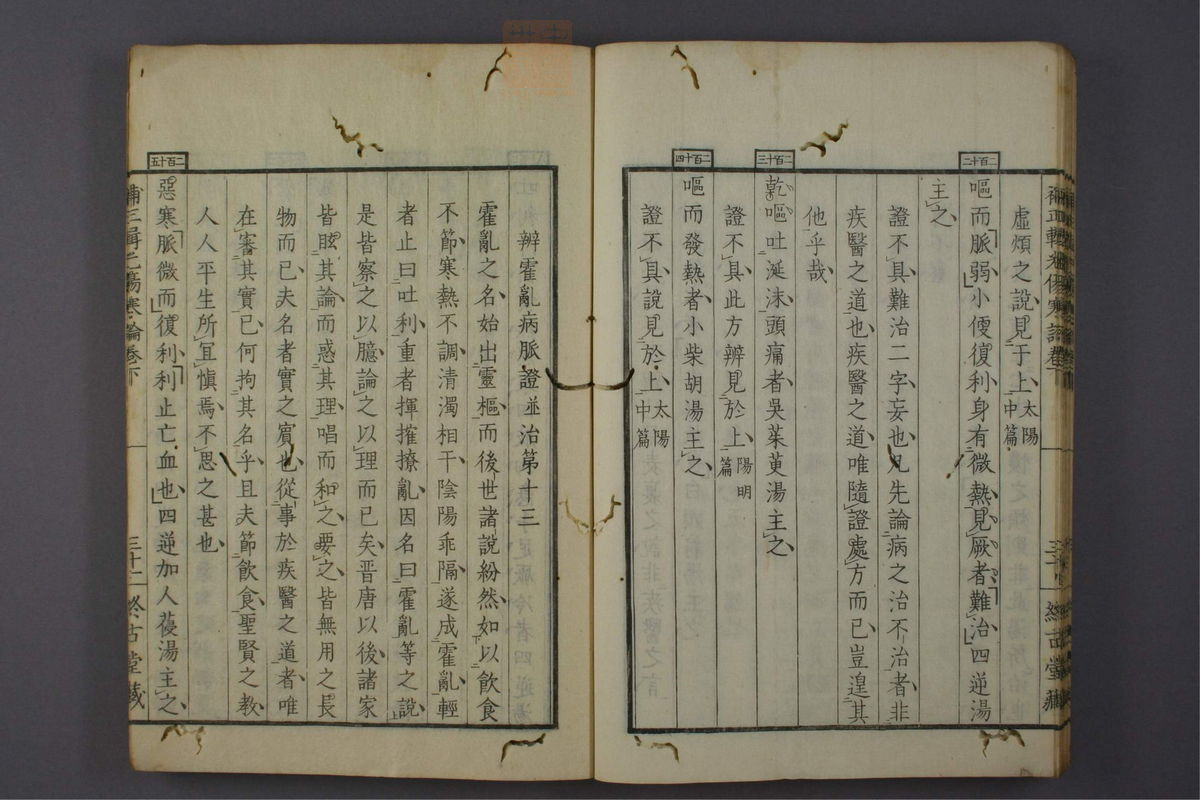 虛煩之說見于上太陽中篇
二百十二
嘔而脈弱小便復利身有微熱見厥者難治四逆湯
主之
證不具難治二字妄也凡先論病之治不治者非
疾醫之道也疾醫之道唯隨證處方而已豈遑其
他乎哉
二百十三
乾嘔吐涎沫頭痛者吳茱萸湯主之
證不具此方辨見於上陽明篇
二百十四
嘔而發熱者小柴胡湯主之
證不具說見於上太陽中篇
辨霍亂病脈證並治第十三
霍亂之名始出靈樞而後世諸說紛然如以飲食
不節寒熱不調清濁相干陰陽乖隔遂成霍亂輕
者止曰吐利重者揮攉撩亂因名曰霍亂等之說
是皆察之以臆論之以理而已矣晋唐以後諸家
皆眩其論而惑其理唱而和之要之皆無用之長
物而已夫名者實之賓也從事於疾醫之道者唯
在審其實已何拘其名乎且夫節飲食聖賢之教
人人平生所宜愼焉不思之甚也
二百十五
惡寒脈微而復利利止亡血也四逆加人葠湯主之
補正輯光傷寒論卷下
三十二
終古堂藏